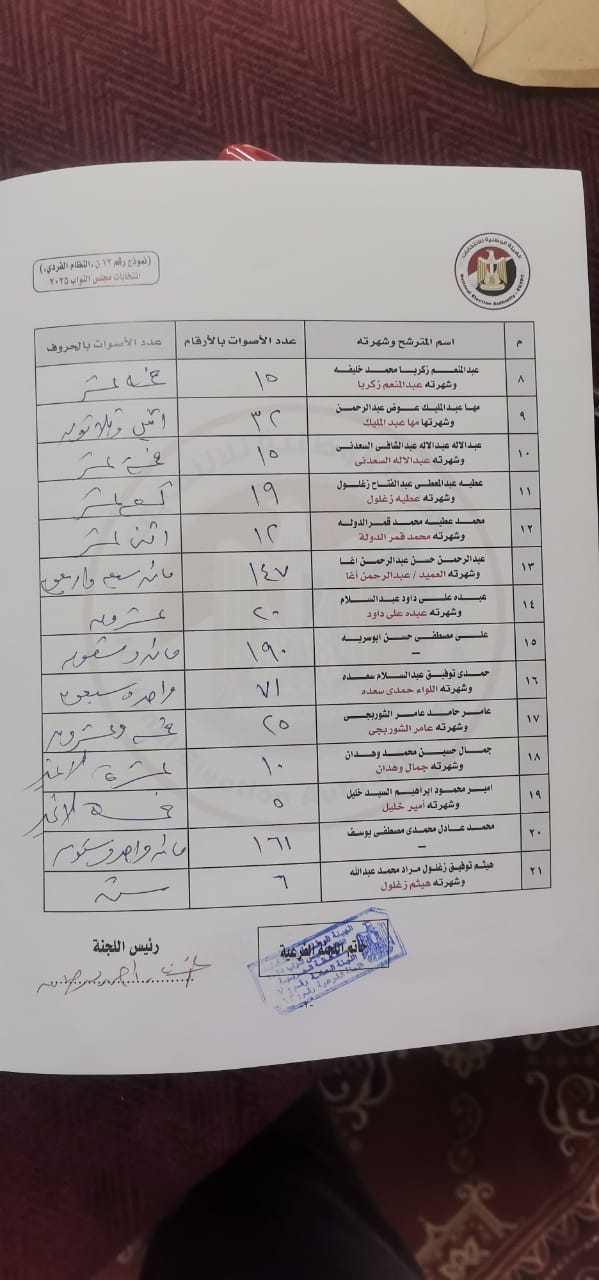 (نموذج رقم ١٢ ن، النظام الفردي)
انتخابات مجلس النواب ٢٠٢٥
الهيئة الوطنية للانتخابات
National Election Authority - EGYPT
م | اسم المترشح وشهرته | عدد الأصوات بالأرقام | عدد الأصوات بالحروف
٨ | عبدالمنعم زكريا محمد خليفه | ١٥ | خمسة عشر
وشهرته عبدالمنعم زكريا
٩ | مها عبدالمليك عوض عبدالرحمن | ٣٢ | اثنين وثلاثون
وشهرتها مها عبد المليك
١٠ | عبدالاله عبدالاله عبدالشافى السعدنى | ١٥ | خمسة عشر
وشهرته عبدالاله السعدنى
١١ | عطيه عبدالمعطى عبدالفتاح زغلول | ١٩ | تسعة عشر
وشهرته عطيه زغلول
١٢ | محمد عطيه محمد قمر الدوله | ١٢ | اثنى عشر
وشهرته محمد قمر الدولة
١٣ | عبدالرحمن حسن عبدالرحمن اغا | ١٤٧ | مائة سبعة واربعون
وشهرته العميد / عبدالرحمن أغا
١٤ | عبده على داود عبد السلام | ٢٠ | عشرون
وشهرته عبده على داود
١٥ | على مصطفى حسن ابوسريه | ١٩٠ | مائة وتسعون
–
١٦ | حمدى توفيق عبدالسلام سعده | ٧١ | واحد وسبعون
وشهرته اللواء حمدى سعده
١٧ | عامر حامد عامر الشوربجى | ٢٥ | خمسة وعشرون
وشهرته عامر الشوربجى
١٨ | جمال حسين محمد وهدان | ١٠ | عشرة لا غير
وشهرته جمال وهدان
١٩ | امير محمود ابراهيم السيد خليل | ٥ | خمسة لا غير
وشهرته أمير خليل
٢٠ | محمد عادل محمدى مصطفى يوسف | ١٦١ | مائة واحد وستون
–
٢١ | هيثم توفيق زغلول مراد محمد عبدالله | ٦ | ستة
وشهرته هيثم زغلول
خاتم اللجنة الفرعية
رئيس اللجنة